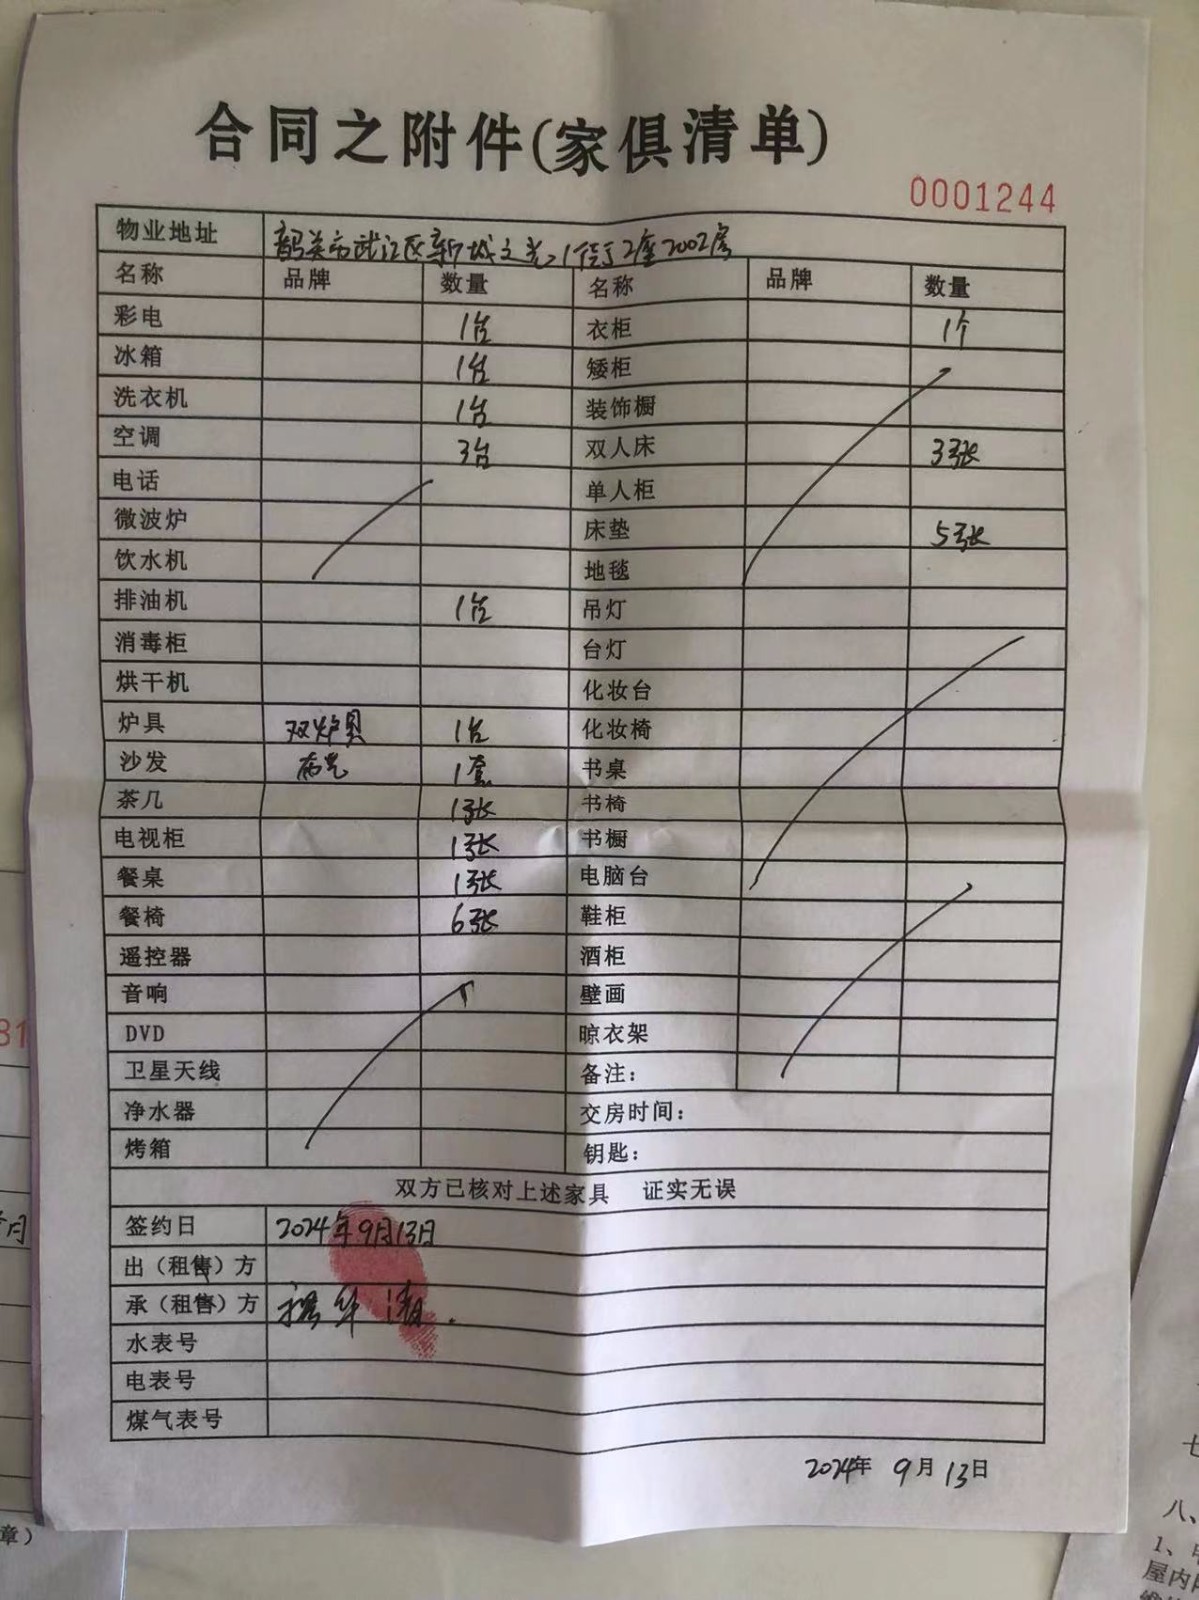 合同之附件(家俱清单)
0001244
物业地址 韶关市武江区新城之光 2座2002房
名称 品牌 数量 名称 品牌 数量
彩电 1台 衣柜 1个
冰箱 1台 矮柜
洗衣机 1台 装饰橱
空调 3台 双人床 3张
电话 单人柜
微波炉 床垫 5张
饮水机 地毯
排油机 1台 吊灯
消毒柜 台灯
烘干机 化妆台
炉具 双炉具 1台 化妆椅
沙发 1套 书桌
茶几 1张 书椅
电视柜 1张 书橱
餐桌 1张 电脑台
餐椅 6张 鞋柜
遥控器 酒柜
音响 壁画
DVD 晾衣架
卫星天线 备注:
净水器 交房时间:
烤箱 钥匙:
双方已核对上述家具 证实无误
签约日 2024年9月13日
出(租售)方
承(租售)方
水表号
电表号
煤气表号
2024年 9月 13日
81
月
章)
七
八、
1、
屋内